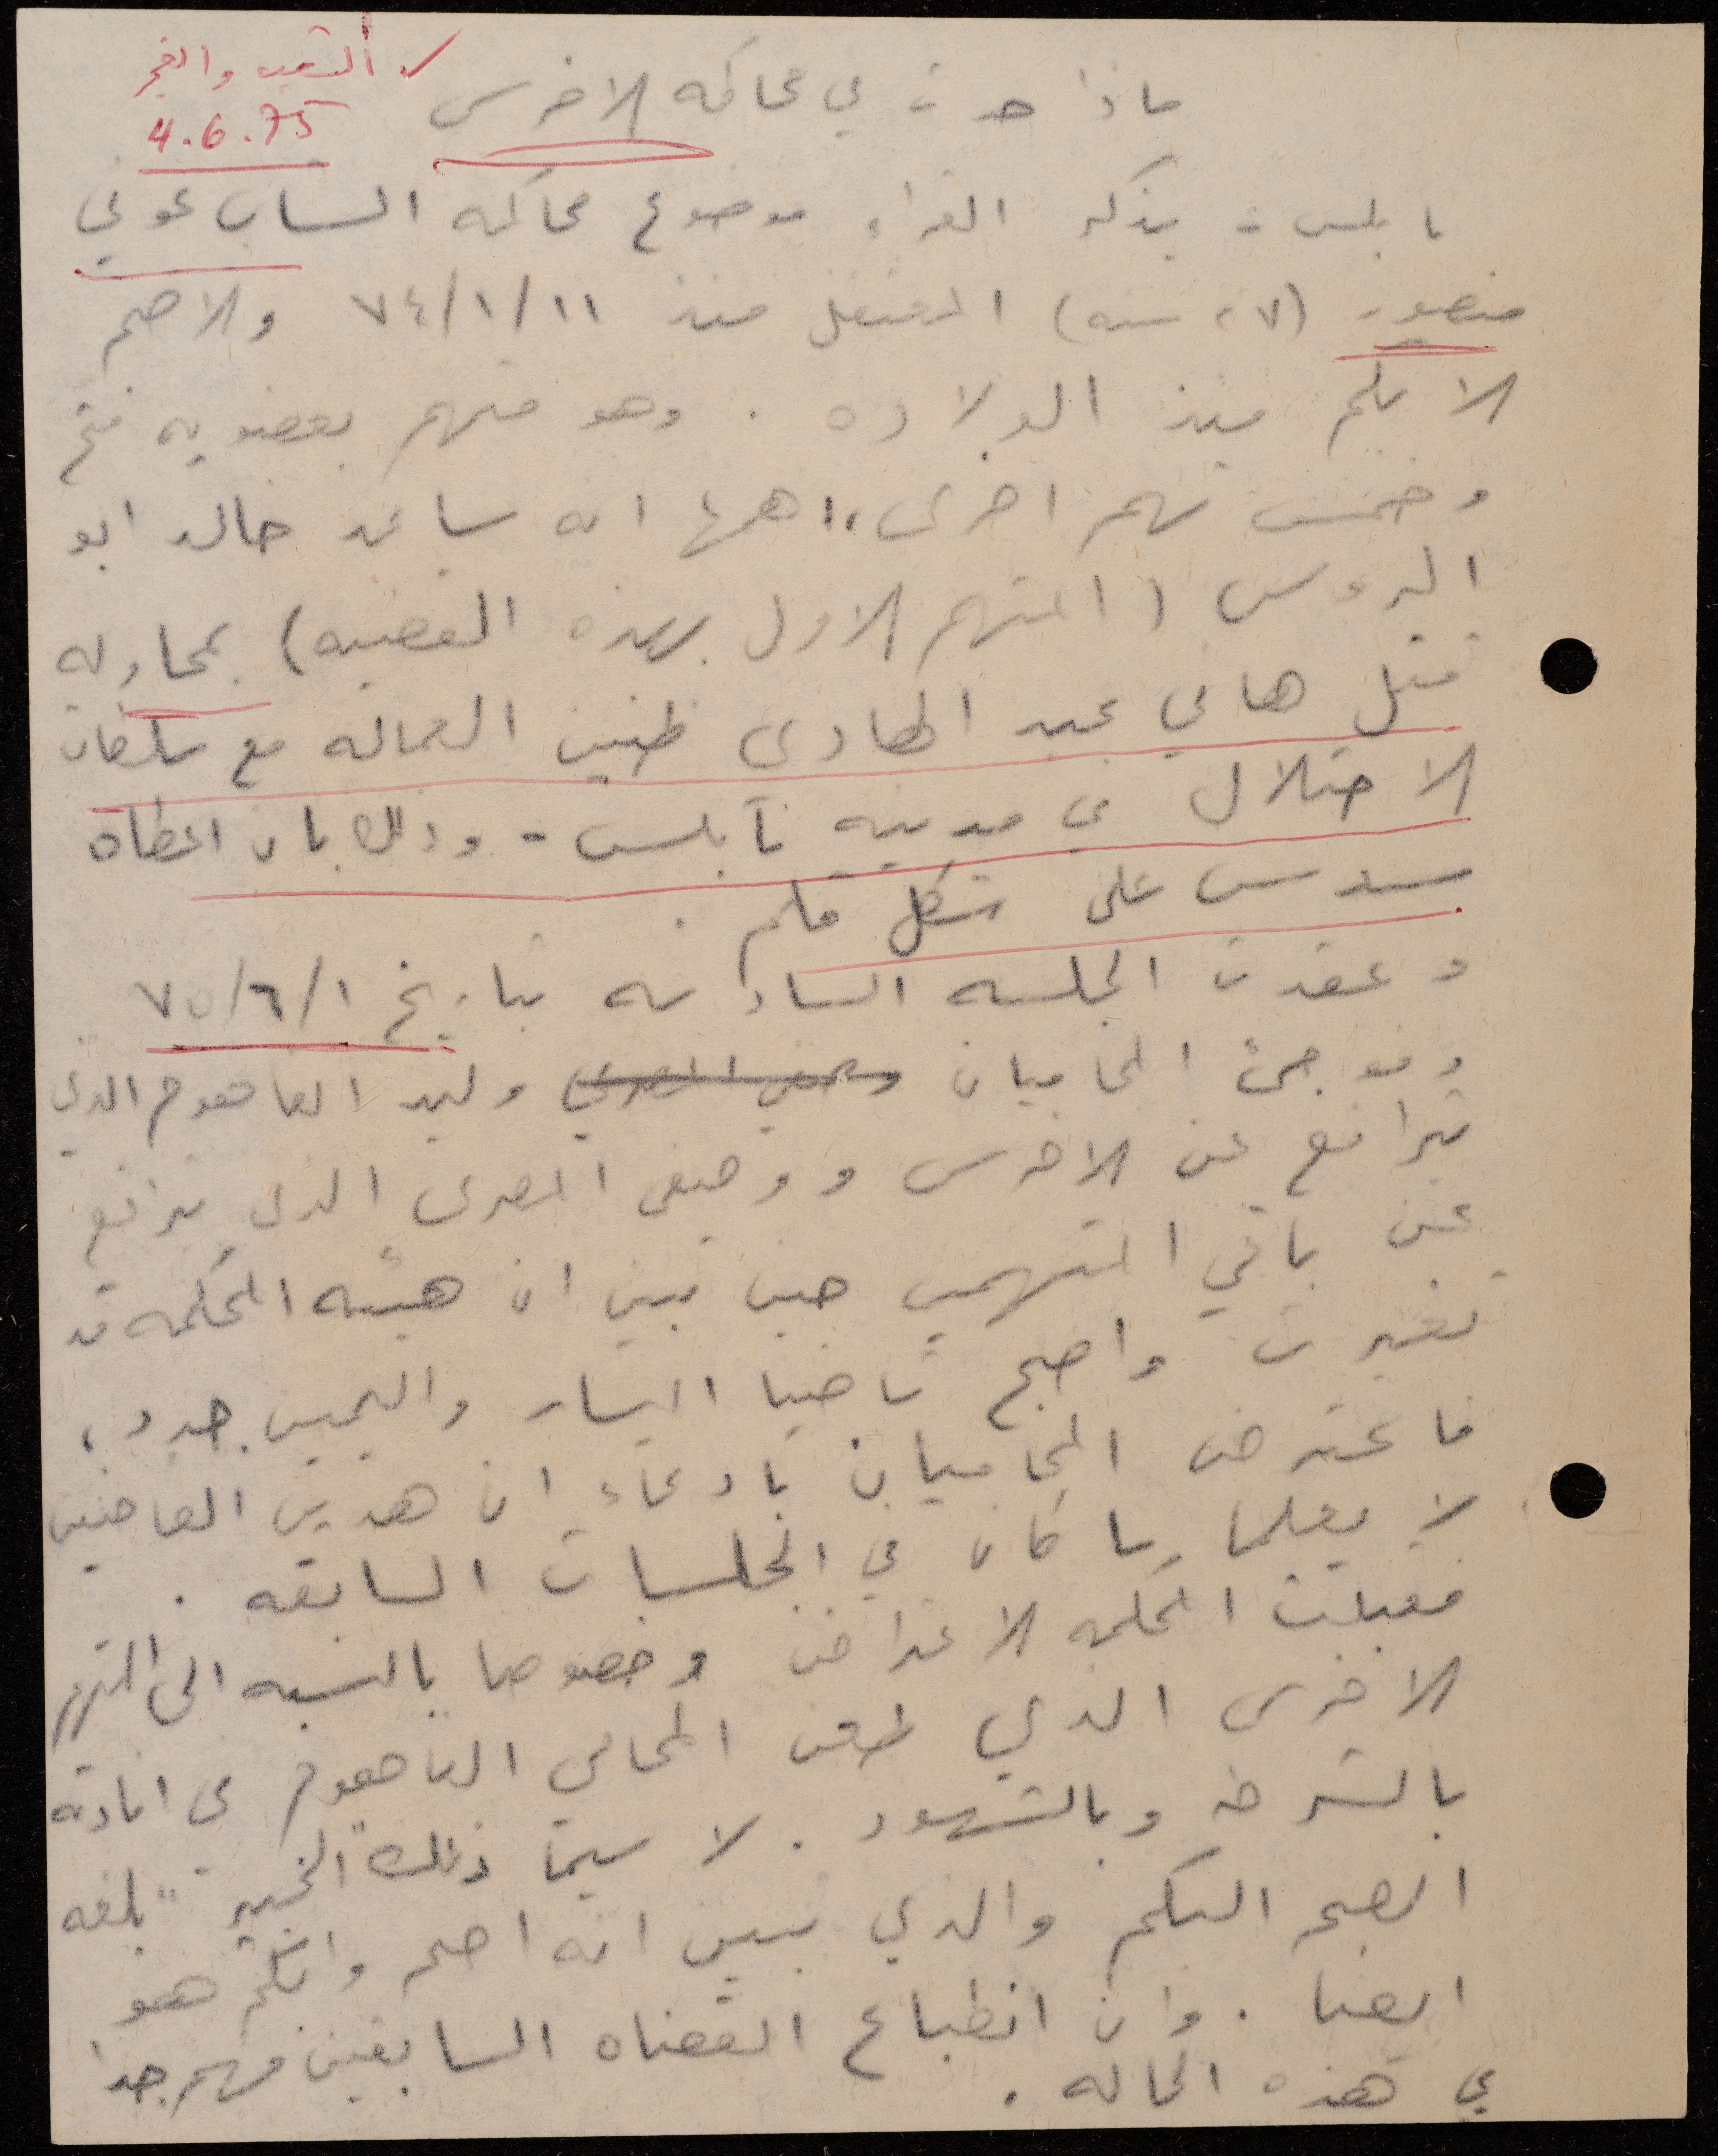 الشعب والفجر
4.6.75
ماذا حدث في محاكمه الاخرس
نابلس - يذكر القراء موضوع محاكمه الشاب عوني
منصور (٢٧ سنه) المعتقل منذ ٧٤/١/١١ والاصم
الابكم منذ الولاده . وهو متهم بعضويه فتح
وخمس تهم اخرى، اهمها انه ساعد خالد ابو
الروس (المتهم الاول بهذه القضيه) بمحاوله
قتل هاني عبد الهادي ظنين العماله مع سلطات
الاحتلال في مدينه نابلس - وذلك بان اعطاه
مسدس على شكل قلم .
وعقدت الجلسه السادسه بتاريخ ٧٥/٦/١
وفوجئ المحاميان وصفي المصري وليد الفاهوم الذي
يترافع عن الاخرس و وصفي المصري الذي يدافع
عن باقي المتهمين حين تبين ان هيئه المحكمه قد
تغيرت واصبح قاضيا اليسار واليمين جدد،
فاعترض المحاميان بادعاء ان هذين القاضيين
لا يعلما بما كان في الجلسات السابقه .
فقبلت المحكمه الاعتراض وخصوصا بالنسبه الى المتهم
الاخرس الذي طعن المحامي الفاهوم في افادته
بالشرطه وبالشهود . لا سيما ذلك "الخبير" بلغه
الصم البكم والذي تبين انه اصم وابكم هو
ايضا . وان انطباع القضاه السابقين مهم جدا
في هذه الحاله .